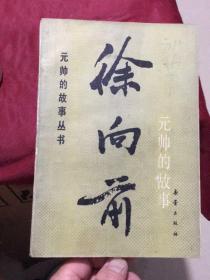 元帅的故事丛书
徐向前
元帅的故事
新蕾出版社